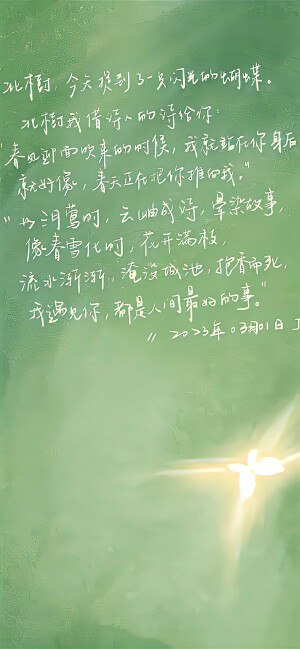 北樹，今天捉到了一只闪光的蝴蝶。
北樹我借诗人的诗给你：
"春风迎面吹来的时候，我就站在你身后
就好像，春天正在把你推向我。"
"以泪莺时，云岫成诗，晕染故事，
像春雪化时，花开满枝，
流水渐渐，淹没城池，抱香而死，
我遇见你，都是人间最好的事。"
" 2023年03月01日